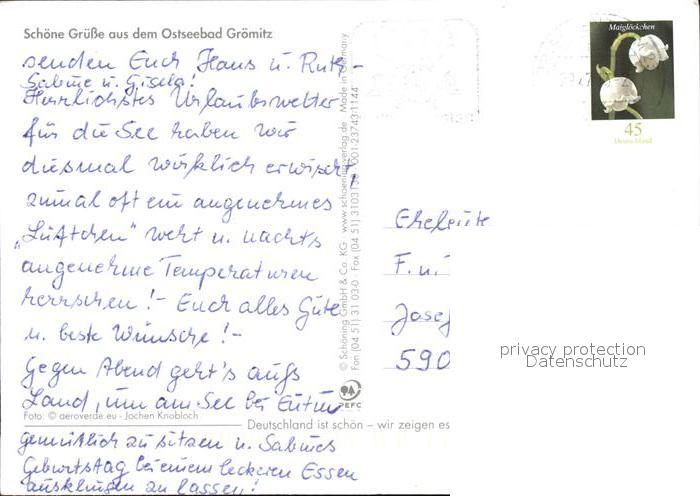 Schöne Grüße aus dem Ostseebad Grömitz
senden Euch Hans u. Ruth-
Sabine u. Gisela!
Herrlichstes Urlaubswetter
für die See haben wir
diesmal wirklich erwischt,
zumal oft ein angenehmes
„Lüftchen" weht u. nachts
angenehme Temperaturen
herrschen!- Euch alles Gute
u. beste Wünsche!-
Gegen Abend geht's aufs
Land, um am See bei Eutin
Foto: © aeroverde.eu - Jochen Knobloch
gemütlich zu sitzen u. Sabines
Geburtstag bei einem leckeren Essen
ausklingen zu lassen!
© Schöning GmbH & Co. KG · www.schoening-verlag.de · Made in Germany
Fon (04 51) 31 03-0 · Fax (04 51) 3103
001-23743-1144
PEFC
Deutschland ist schön – wir zeigen es
Maiglöckchen
45
Deutschland
Eheleute
F. u.
Josef
590
privacy protection
Datenschutz